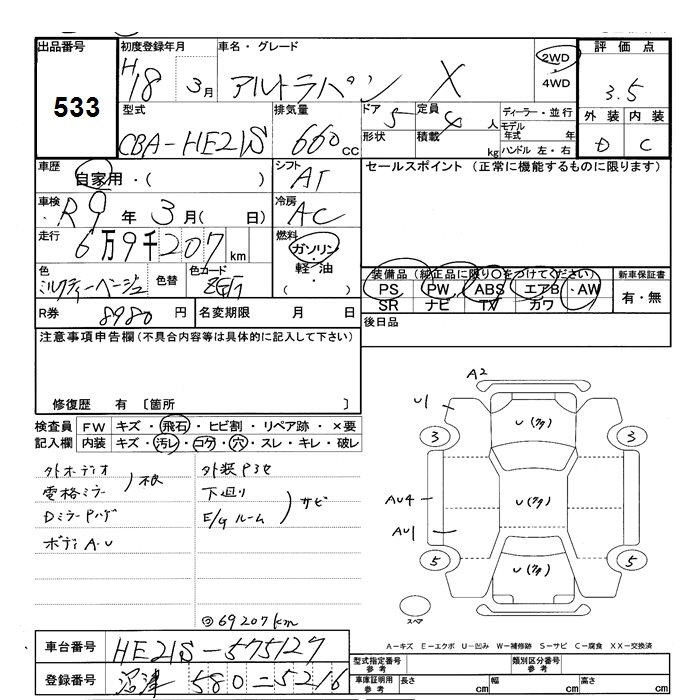 出品番号 初度登録年月 車名・グレード 評価点
533 H18 3月 アルトラパン X 2WD・4WD 3.5
型式 排気量 ドア 5 定員 4人 ディーラー・並行 外装 内装
CBA-HE21S 660cc 形状 積載 kg モデル年式 年 ハンドル 左・右 D C
車歴 自家用・( ) シフト AT セールスポイント (正常に機能するものに限ります)
車検 R9年3月( 日) 冷房 AC
走行 6万9千207km 燃料 ガソリン・軽油・( )
色 ミルクティーベージュ 色替 色コード 装備品 (純正品に限り○をつけてください) 新車保証書
PS PW ABS エアB・AW 有・無
SR ナビ TV カワ
R券 8980円 名変期限 月 日 後日品
注意事項申告欄 (不具合内容等は具体的に記入して下さい)
修復歴 有 〔箇所 〕
検査員 FW キズ・飛石・ヒビ割・リペア跡・×要
記入欄 内装 キズ・汚レ・コゲ・穴・スレ・キレ・破レ
外オーディオ
電格ミラー
Dミラー
ボディA.U
外装
下廻り
E/Gルーム
サビ
◎69207km
A2
U1
3 U 3
AU4 U
AU1
5 U 5
スペア
A-キズ E-エクボ U-凹み W-補修跡 S-サビ C-腐食 XX-交換済
車台番号 HE21S-575127 型式指定番号 参考 類別区分番号 参考
登録番号 沼津 580 = 5216 車庫証明用 参考 長さ cm 幅 cm 高さ cm